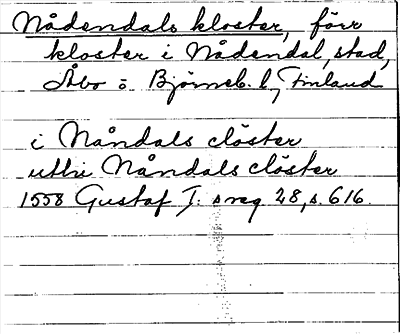 Nådendals kloster, förr
kloster i Nådendal, stad,
Åbo o Björneb. l, Finland
i Nåndals clöster
uthi Nåndals clöster
1558 Gustaf I: s reg 28, s. 616.